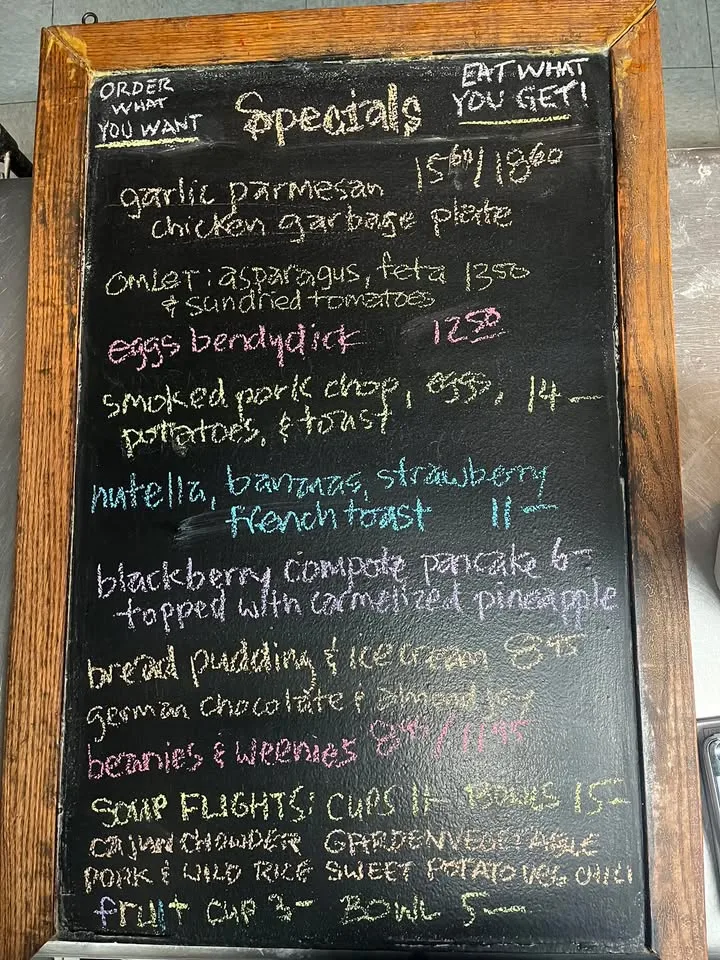 ORDER
WHAT
YOU WANT
Specials
EAT WHAT
YOU GET!
garlic parmesan 15⁶⁰/18⁶⁰
chicken garbage plate
OMLET: asparagus, feta 13⁵⁰
& sundried tomatoes
eggs bendydick 12⁵⁰
smoked pork chop, eggs, 14—
potatoes, & toast
nutella, bananas, strawberry
french toast 11—
blackberry compote pancake 6—
topped with carmelized pineapple
bread pudding & ice cream 8⁹⁵
german chocolate & almond joy
beanies & weenies 8⁹⁵/11⁹⁵
SOUP FLIGHTS: CUPS 11— BOWLS 15—
CAJUN CHOWDER GARDEN VEGETABLE
PORK & WILD RICE SWEET POTATO VEG CHILI
fruit CUP 3— BOWL 5—